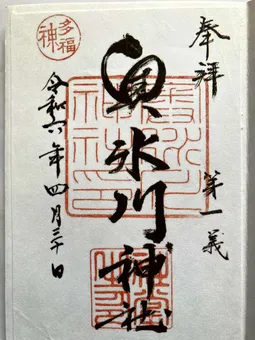 奉拝
第一義
奥氷川神社
令和六年四月三十日
多福神